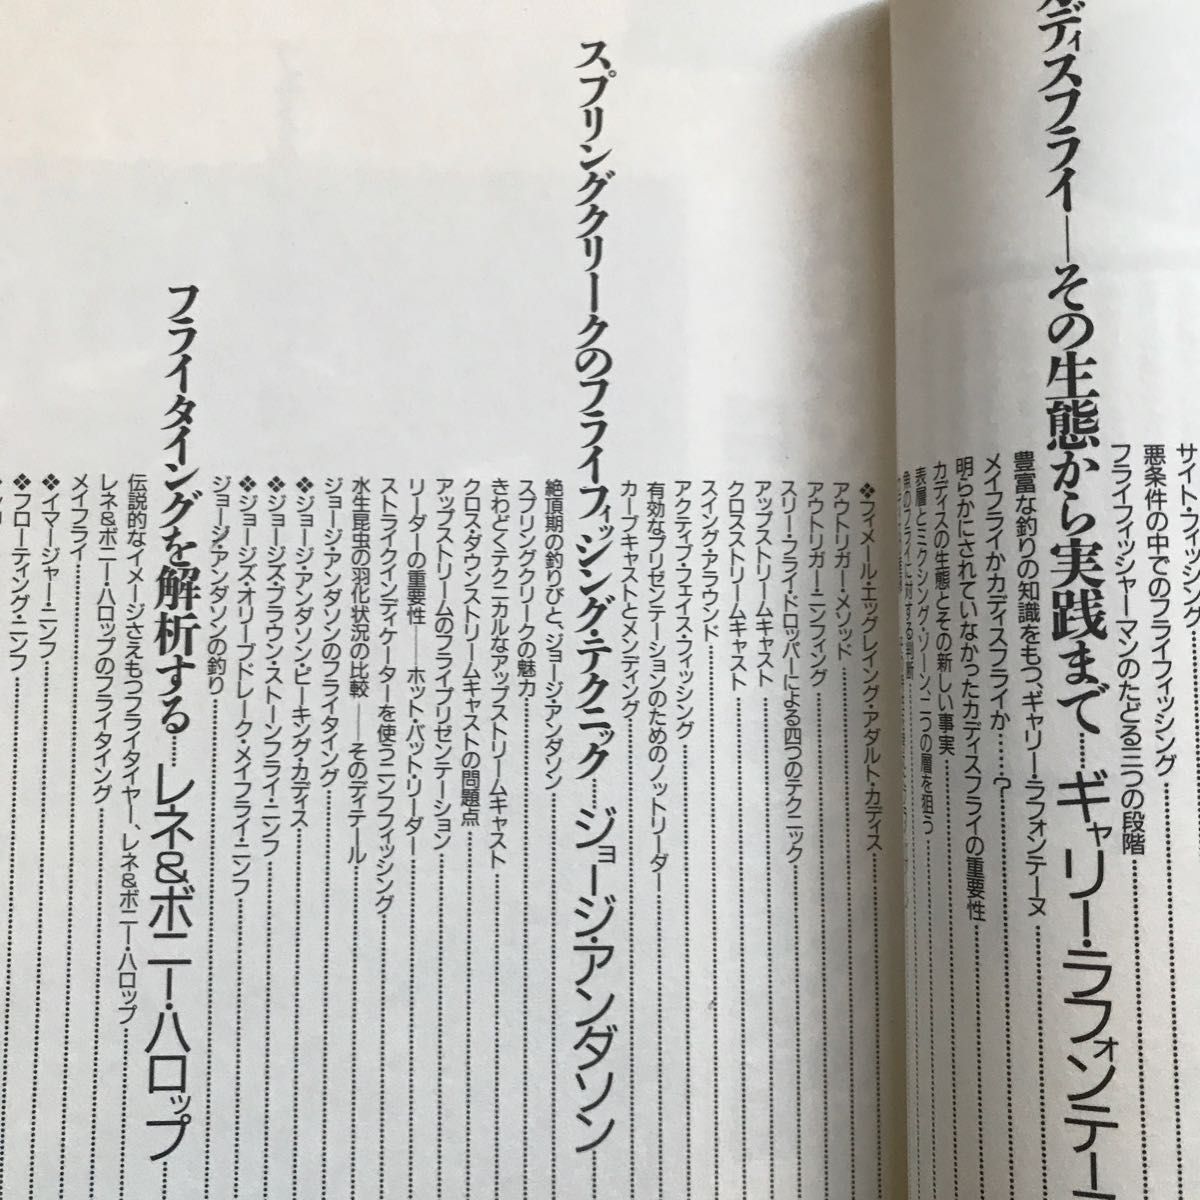 サイト・フィッシング
悪条件の中でのフライフィッシング
フライフィッシャーマンのたどる三つの段階
ディスフライ──その生態から実践まで……ギャリー・ラフォンテー
豊富な釣りの知識をもつ、ギャリー・ラフォンテーヌ
メイフライかカディスフライか……?
明らかにされていなかったカディスフライの重要性
カディスの生態とその新しい事実
表層とミクシング・ゾーン、二つの層を狙う
❖フィメール・エッグレイング・アダルト・カディス
アウトリガー・メソッド
アウトリガー・ニンフィング
スリー・フライ・ドロッパーによる四つのテクニック
アップストリームキャスト
クロスストリームキャスト
スイング・アラウンド
アクティブ・フェイス・フィッシング
有効なプリゼンテーションのためのノットリーダー
カーブキャストとメンディング
スプリングクリークのフライフィッシング・テクニック……ジョージ・アンダソン
絶頂期の釣りびと、ジョージ・アンダソン
スプリングクリークの魅力
きわどくテクニカルなアップストリームキャスト
クロス・ダウンストリームキャストの問題点
アップストリームのフライプリゼンテーション
リーダーの重要性──ホット・バット・リーダー
ストライクインディケーターを使うニンフフィッシング
水生昆虫の羽化状況の比較──そのディテール
ジョージ・アンダソンのフライタイング
❖ジョージ・アンダソン・ピーキング・カディス
❖ジョージズ・ブラウン・ストーンフライ・ニンフ
❖ジョージズ・オリーブドレーク・メイフライ・ニンフ
ジョージ・アンダソンの釣り
フライタイングを解析する……レネ&ボニー・ハロップ
伝説的なイメージさえもつフライタイヤー、レネ&ボニー・ハロップ
レネ&ボニー・ハロップのフライタイング
メイフライ
❖イマージャー・ニンフ
❖フローティング・ニンフ